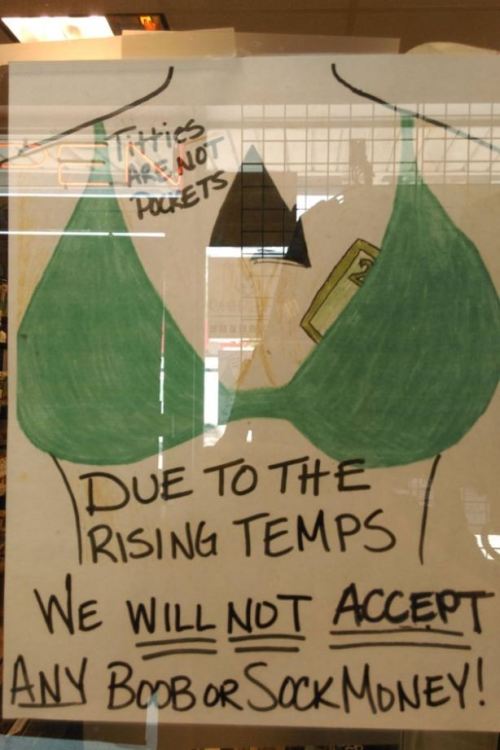 Titties
ARE NOT
POCKETS
2
DUE TO THE
RISING TEMPS
WE WILL NOT ACCEPT
ANY BOOB OR SOCK MONEY!